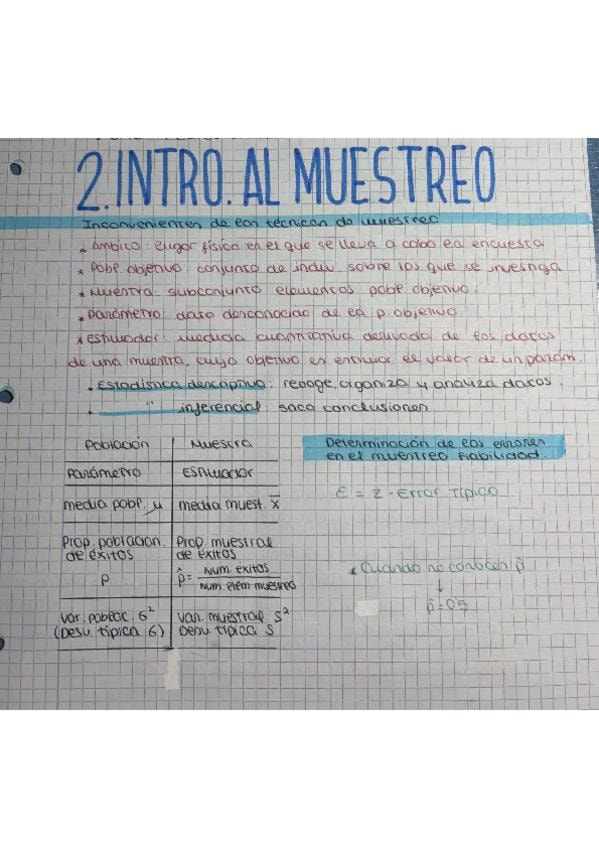 2. INTRO. AL MUESTREO
Inconvenientes de las técnicas de muestreo
Ámbito: lugar físico en el que se lleva a cabo la encuesta
Pobl. objetivo: conjunto de indiv. sobre los que se investiga
Muestra: subconjunto elementos pobl. objetivo.
Parámetro: dato desconocido de la p. objetivo
Estimador: medida cuantitativa derivada de los datos
de una muestra, cuyo objetivo es estimar el valor de un parám.
Estadística descriptiva: recoge, organiza y analiza datos.
" inferencial: saca conclusiones
Población Muestra
Parámetro Estimador
media pobl. μ media muest. x̄
Prop. poblacion. de éxitos p
Prop. muestral de éxitos
p̂ = Num. éxitos / num. elem. muestreo
Var. poblac. σ² (Desv. típica σ)
Var. muestral s² Desv. típica s
Determinación de los errores
en el muestreo. Fiabilidad.
E = Z · Error típico
Cuando no conoces p̂
↓
p̂ = 0'5